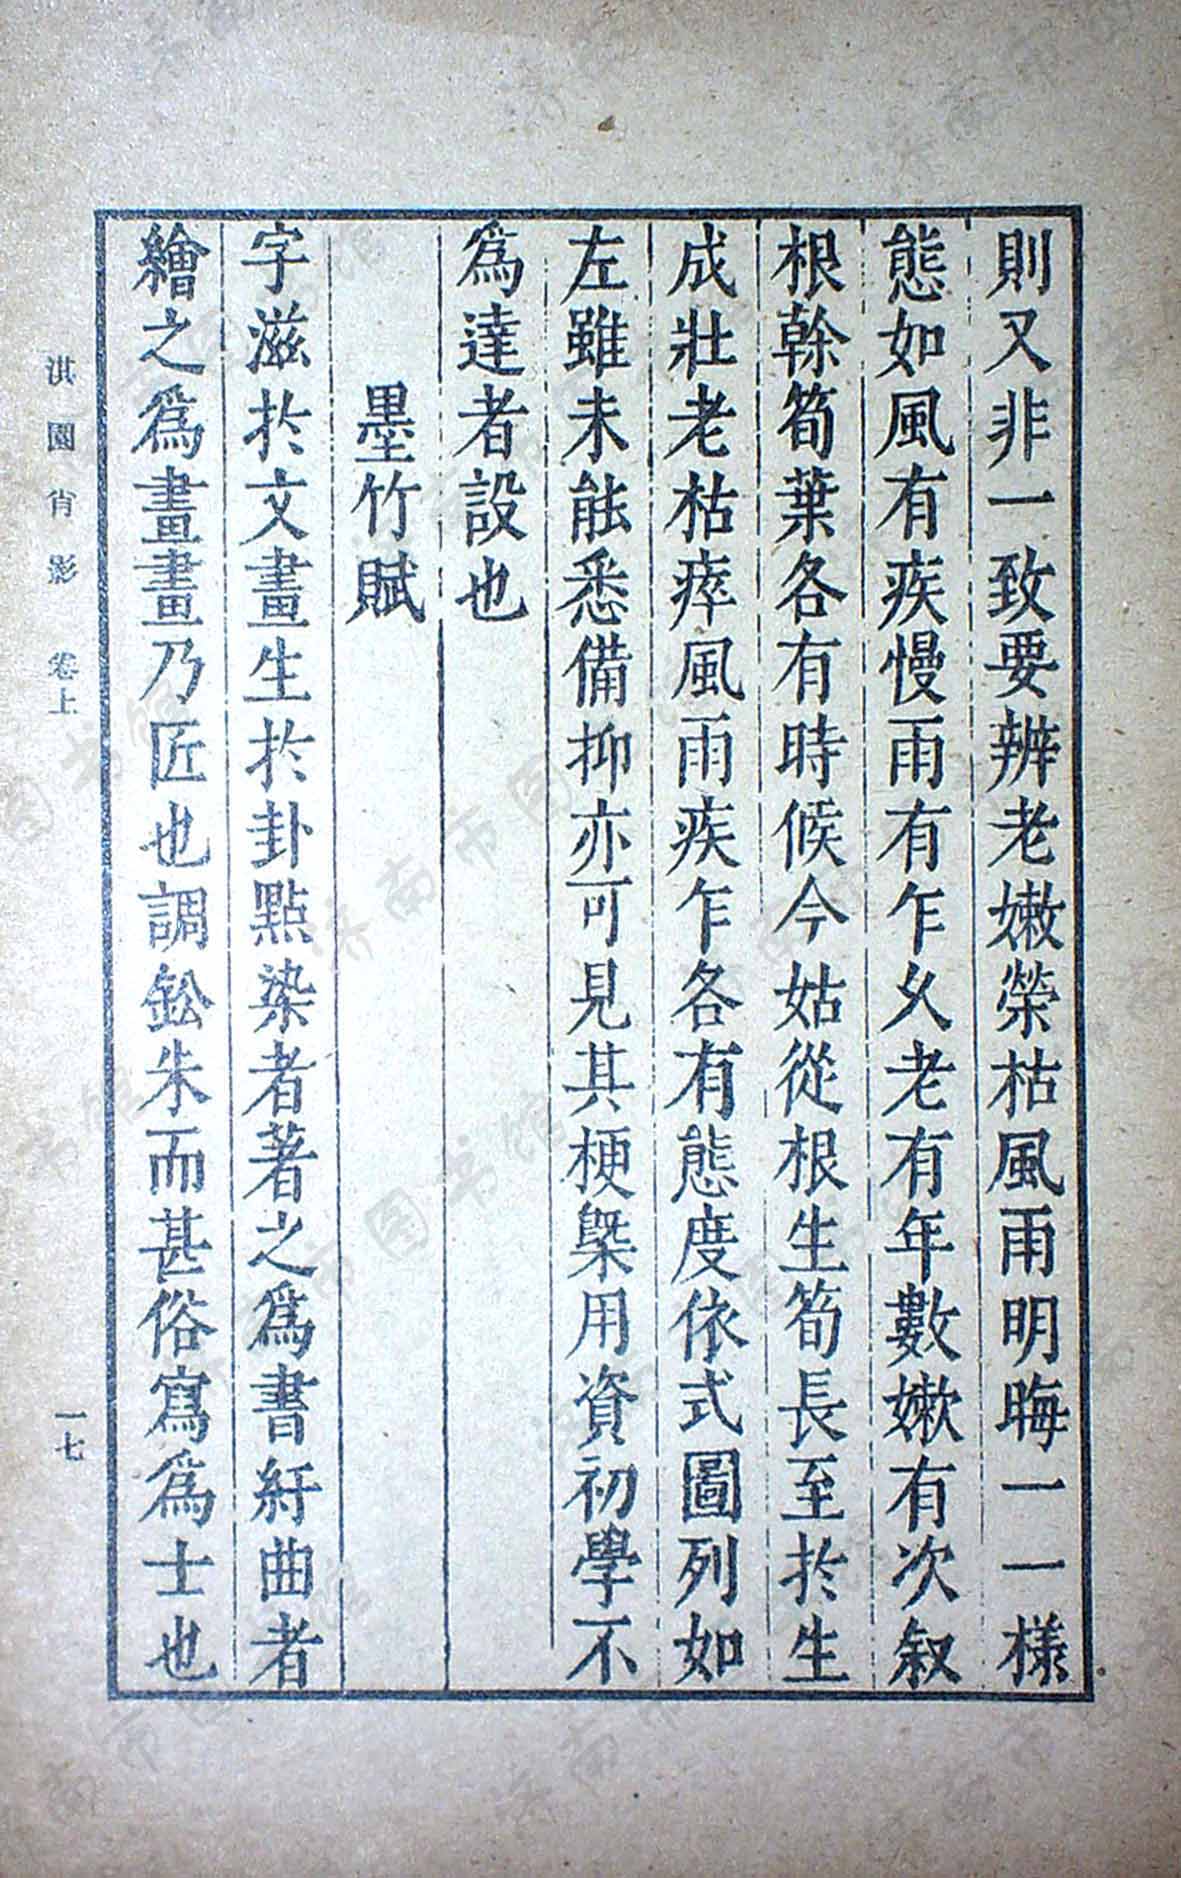 則又非一致要辨老嫩榮枯風雨明晦一一樣
態如風有疾慢雨有乍久老有年數嫩有次叙
根幹筍葉各有時候今姑從根生筍長至於生
成壯老枯瘁風雨疾乍各有態度依式圖列如
左雖未能悉備抑亦可見其梗槩用資初學不
為達者設也
墨竹賦
字滋於文畫生於卦點染者著之為書紆曲者
繪之為畫畫乃匠也調鉛朱而甚俗寫為士也
淇園肖影 卷上
一七